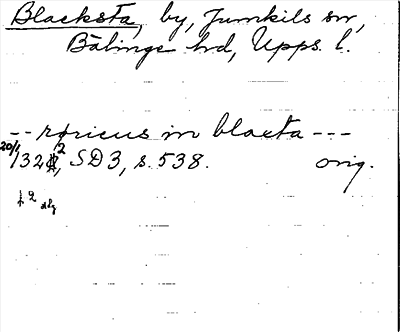 Blacksta, by, Jumkils sn,
Bälinge hd, Upps. l.
-- roricus in blacta ---
20/1 132 2, SD 3, s. 538. orig.